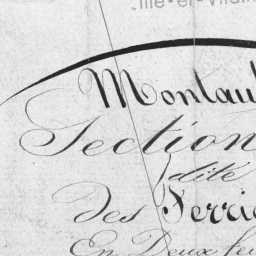 Ille-et-Vilain
Montau
Section
dite
des Ferri
En Deux feu